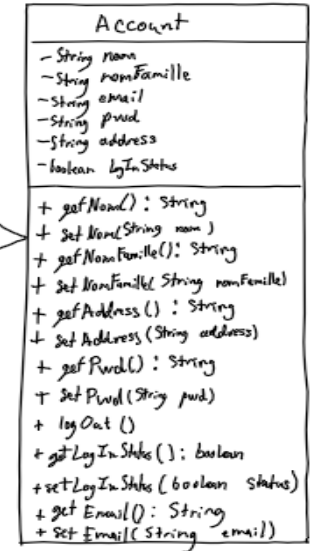 Account
- String nom
- String nomFamille
- String email
- String pwd
- String address
- boolean LogInStatus
+ getNom() : String
+ set Nom(String nom)
+ getNomFamille(): String
+ set NomFamille( String nomFamille)
+ getAddress () : String
+ set Address (String address)
+ getPwd() : String
+ set Pwd (String pwd)
+ logOut ()
+ getLogInStatus () : boolean
+ setLogInStatus ( boolean status)
+ get Email() : String
+ set Email( String email)